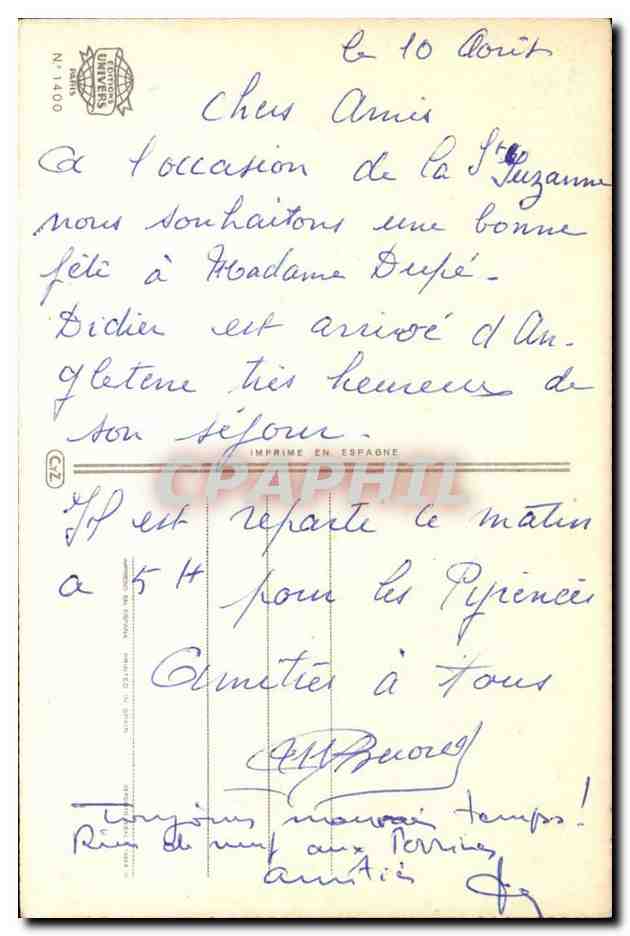 le 10 Août
Chers Amis
A l'occasion de la Ste Suzanne
nous souhaitons une bonne
fête à Madame Dupé.
Didier est arrivé d'An-
gleterre très heureux de
son séjour.
Il est reparti ce matin
a 5H pour les Pyrénées
Amitiés à tous
Toujours mauvais temps!
Rien de neuf aux
Amitiés
EDITIONS
UNIVERS
PARIS
N° 1400
IMPRIME EN ESPAGNE
CYZ
CPAPHIL
PRINTED IN SPAIN